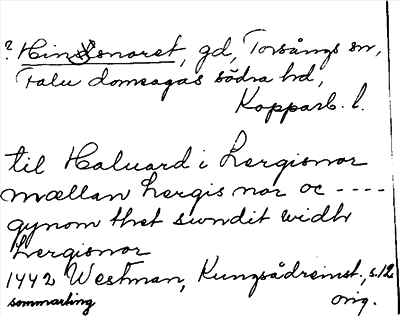 ? Hinsnoret, gd, Torsångs sn,
Falu domsagas södra hd,
Kopparb. l.
til Haluard i Lergisnor
mællan Lergis nor oc ----
gynom thet swndit widh
Lergisnor
1442 Westman, Kungsådreinst., s.12
sommarting orig.